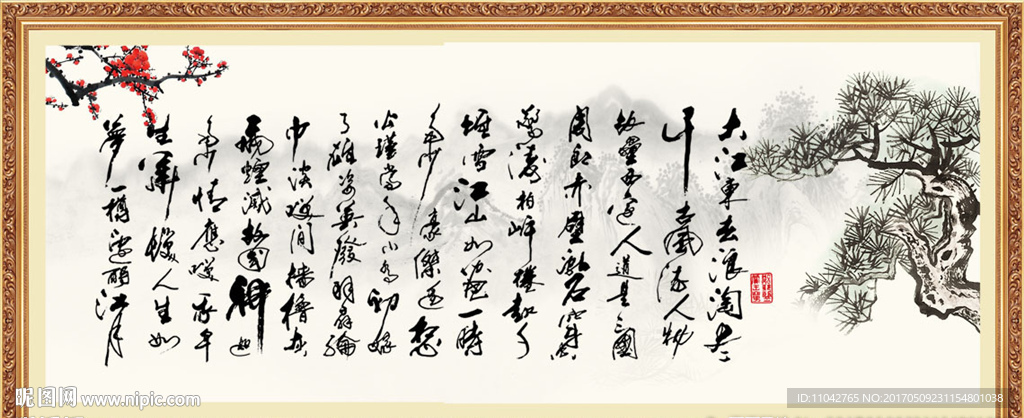 大江東去浪淘盡
千古風流人物
故壘西邊人道是三國
周郎赤壁亂石穿空
驚濤拍岸捲起千
堆雪江山如畫一時
多少豪傑遥想
公瑾當年小喬初嫁
了雄姿英發羽扇綸
巾談笑間檣櫓灰
飛煙滅故國神遊
多情應笑我早
生華髮人生如
夢一樽還酹江月
昵图网 www.nipic.com
ID:11042765 NO:20170509231154801038